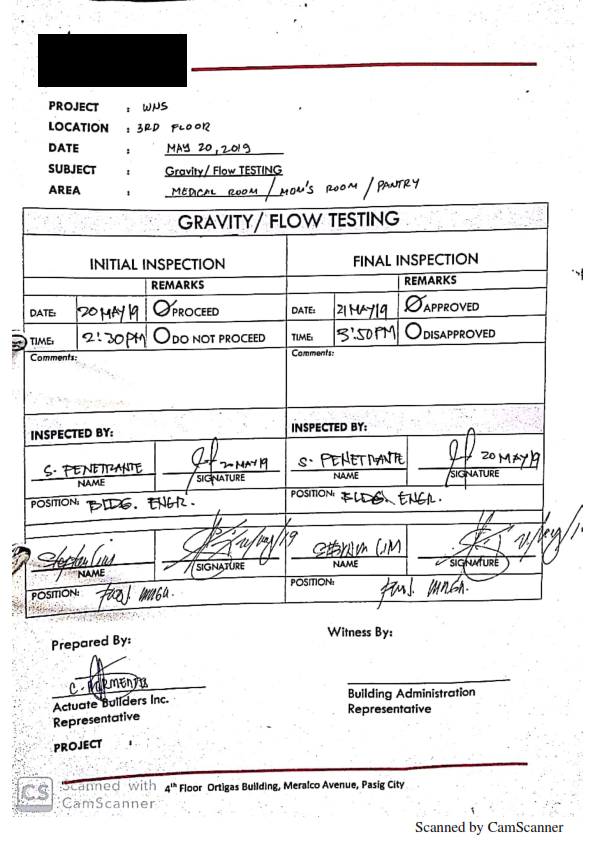 PROJECT : WNS
LOCATION : 3RD FLOOR
DATE : MAY 20, 2019
SUBJECT : Gravity/ Flow TESTING
AREA : MEDICAL ROOM / MOM'S ROOM / PANTRY
GRAVITY/ FLOW TESTING
INITIAL INSPECTION
FINAL INSPECTION
REMARKS
REMARKS
DATE: 20 MAY 19 PROCEED
DATE: 21 MAY 19 APPROVED
TIME: 2:30PM DO NOT PROCEED
TIME: 3:50PM DISAPPROVED
Comments:
Comments:
INSPECTED BY:
INSPECTED BY:
S. PENETRANTE 20 MAY 19
NAME SIGNATURE
POSITION: BLDG. ENGR.
S. PENETRANTE 20 MAY 19
NAME SIGNATURE
POSITION: BLDG. ENGR.
Stephen Lim
NAME SIGNATURE
POSITION:
STEPHEN LIM
NAME SIGNATURE
POSITION:
Prepared By:
Witness By:
C. ARMENTA
Actuate Builders Inc.
Representative
Building Administration
Representative
PROJECT :
CS Scanned with
CamScanner
4th Floor Ortigas Building, Meralco Avenue, Pasig City
Scanned by CamScanner